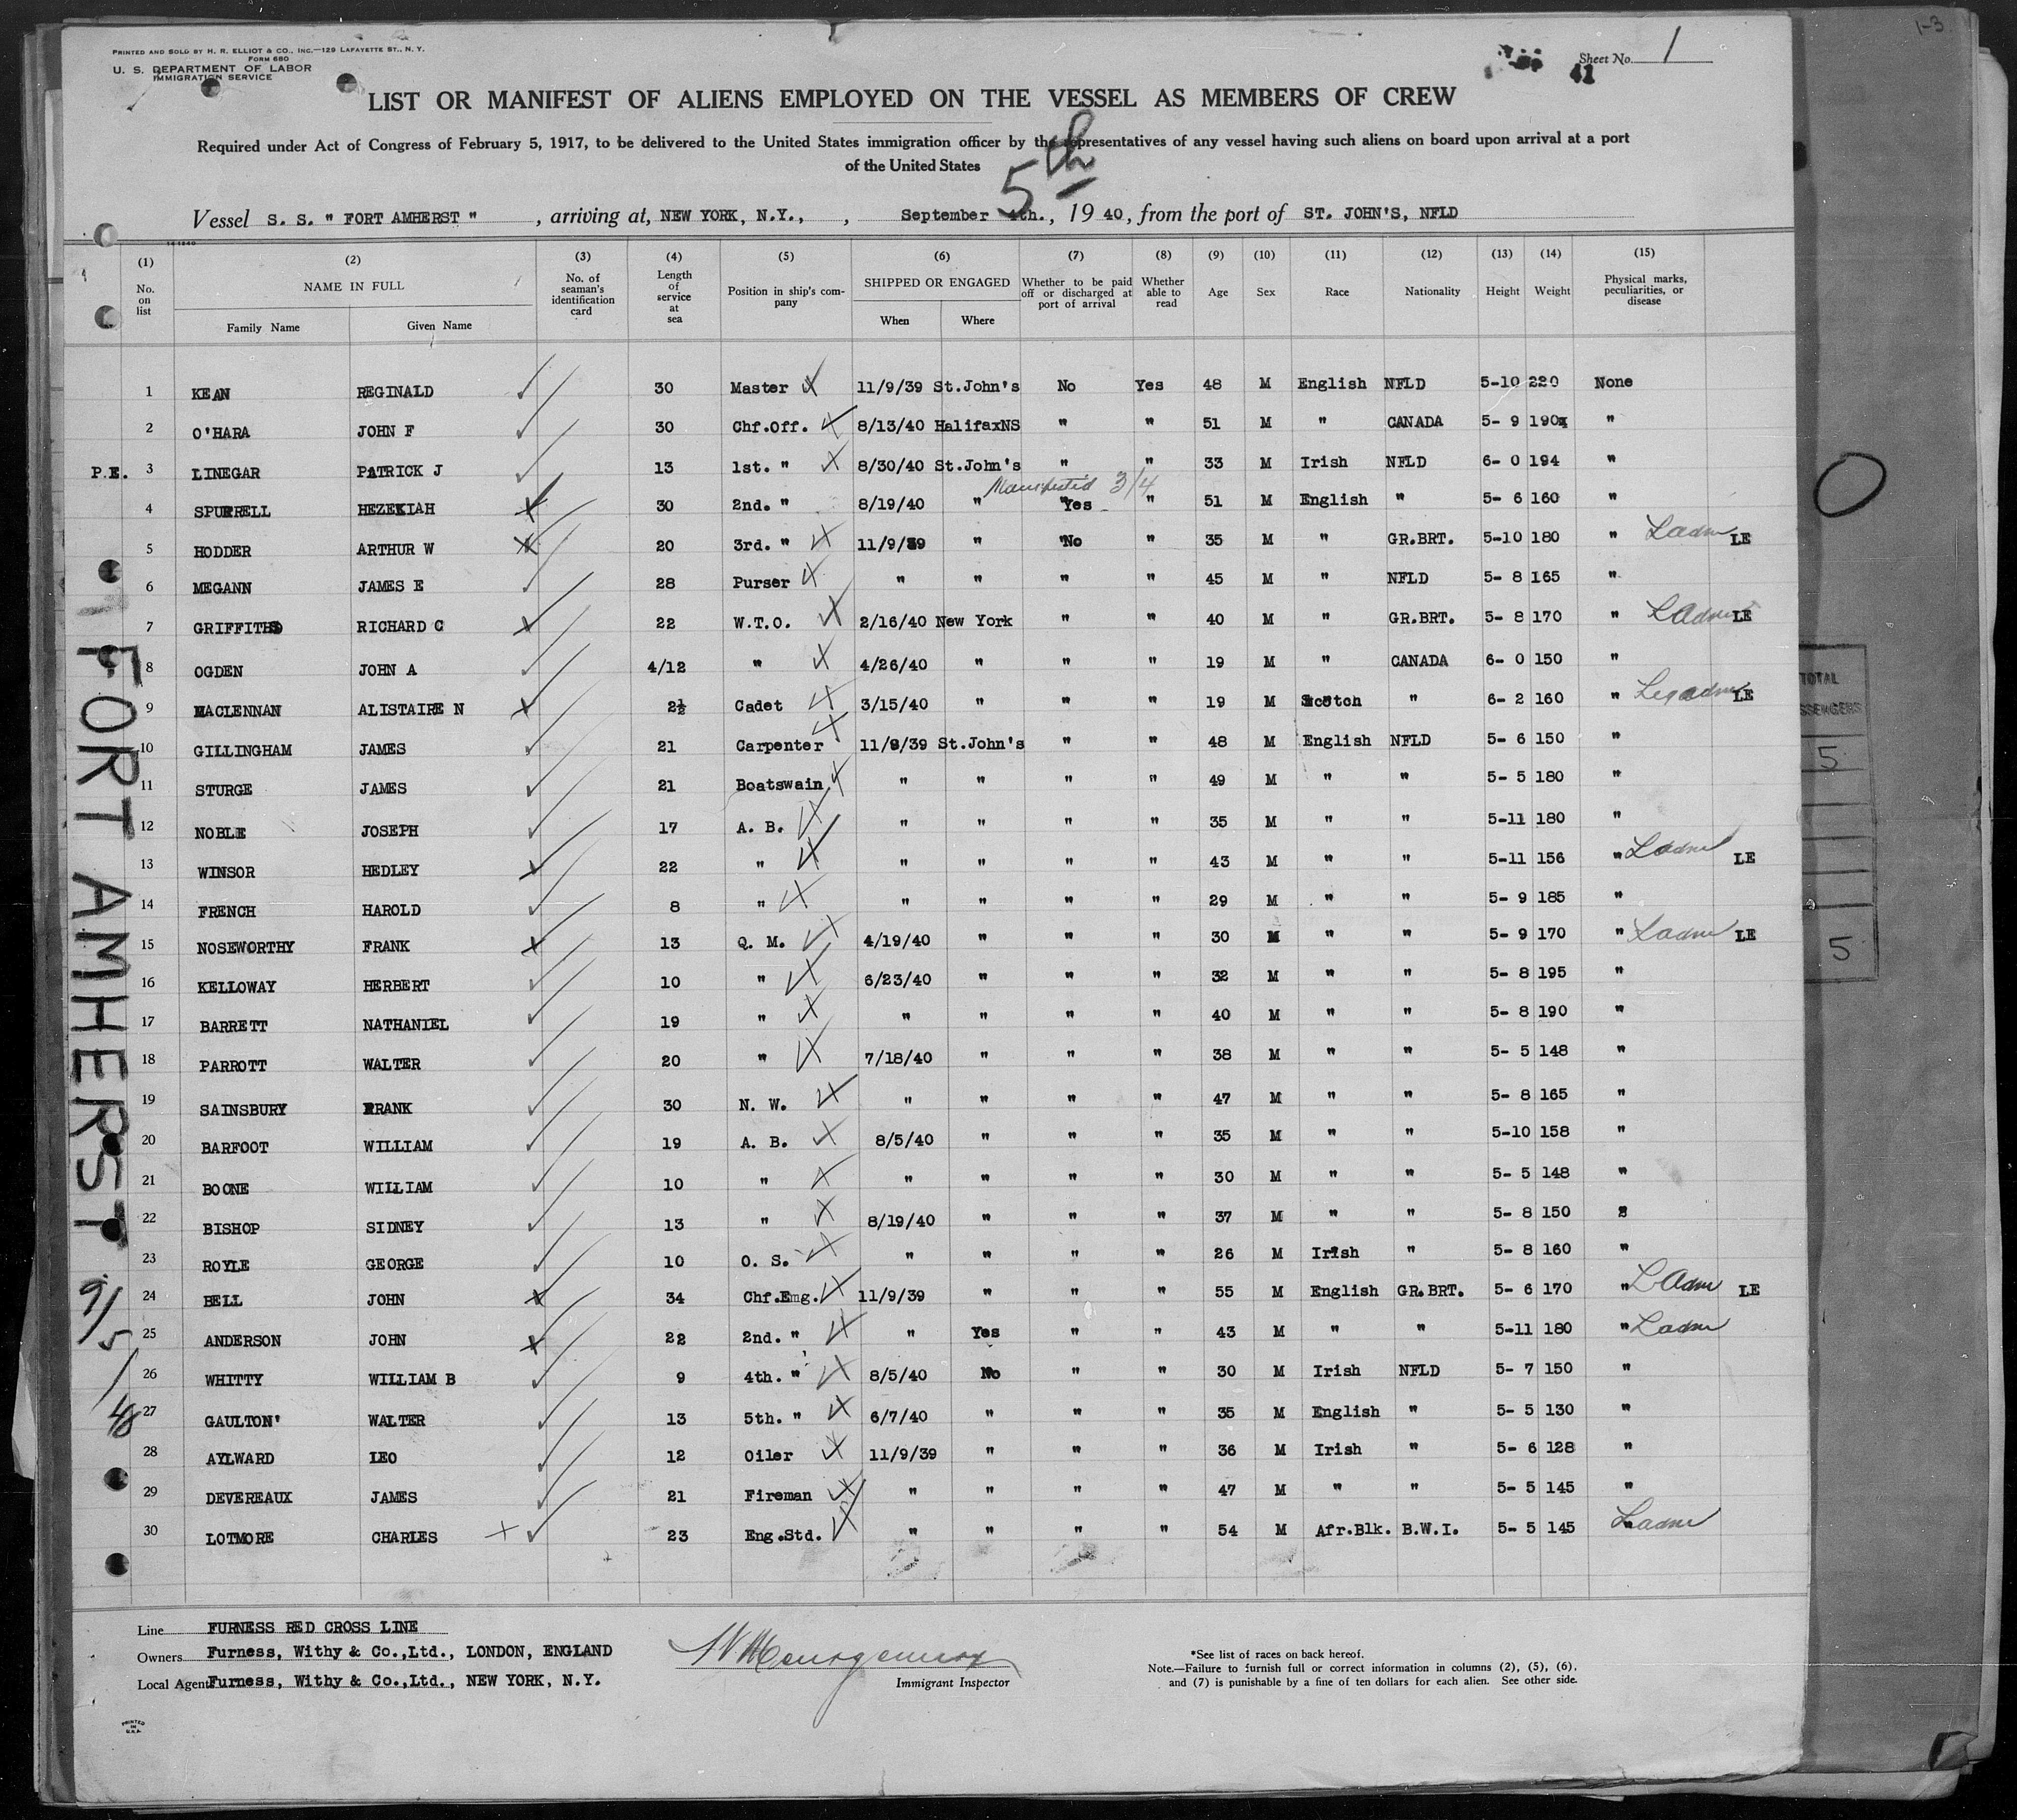 1-3
PRINTED AND SOLD BY H. R. ELLIOT & CO., INC.—129 LAFAYETTE ST., N. Y.
FORM 680
U. S. DEPARTMENT OF LABOR
IMMIGRATION SERVICE
Sheet No. 1
41
LIST OR MANIFEST OF ALIENS EMPLOYED ON THE VESSEL AS MEMBERS OF CREW
Required under Act of Congress of February 5, 1917, to be delivered to the United States immigration officer by the representatives of any vessel having such aliens on board upon arrival at a port
of the United States
5th
Vessel S. S. " FORT AMHERST " , arriving at, NEW YORK, N.Y., , September 4th., 19 40, from the port of ST. JOHN'S, NFLD
(1) (2) (3) (4) (5) (6) (7) (8) (9) (10) (11) (12) (13) (14) (15)
No. on list NAME IN FULL Family Name Given Name No. of seaman's identification card Length of service at sea Position in ship's company SHIPPED OR ENGAGED When Where Whether to be paid off or discharged at port of arrival Whether able to read Age Sex Race Nationality Height Weight Physical marks, peculiarities, or disease
1 KEAN REGINALD 30 Master 11/9/39 St.John's No Yes 48 M English NFLD 5-10 220 None
2 O'HARA JOHN F 30 Chf.Off. 8/13/40 HalifaxNS " " 51 M " CANADA 5- 9 190x "
P.E. 3 LINEGAR PATRICK J 13 1st. " 8/30/40 St.John's " " 33 M Irish NFLD 6- 0 194 "
Manifested 3/4
4 SPURRELL HEZEKIAH 30 2nd. " 8/19/40 " "Yes " 51 M English " 5- 6 160 "
5 HODDER ARTHUR W 20 3rd. " 11/9/39 " "No " 35 M " GR.BRT. 5-10 180 " Ladm LE
6 MEGANN JAMES E 28 Purser " " " " 45 M " NFLD 5- 8 165 "
7 GRIFFITHS RICHARD C 22 W.T.O. 2/16/40 New York " " 40 M " GR.BRT. 5- 8 170 " Ladm LE
8 OGDEN JOHN A 4/12 " 4/26/40 " " " 19 M " CANADA 6- 0 150 "
9 MACLENNAN ALISTAIRE N 2½ Cadet 3/15/40 " " " 19 M Scotch " 6- 2 160 " Legadm LE
10 GILLINGHAM JAMES 21 Carpenter 11/9/39 St.John's " " 48 M English NFLD 5- 6 150 "
11 STURGE JAMES 21 Boatswain " " " " 49 M " " 5- 5 180 "
12 NOBLE JOSEPH 17 A. B. " " " " 35 M " " 5-11 180 "
13 WINSOR HEDLEY 22 " " " " " 43 M " " 5-11 156 " Ladm LE
14 FRENCH HAROLD 8 " " " " " 29 M " " 5- 9 185 "
15 NOSEWORTHY FRANK 13 Q. M. 4/19/40 " " " 30 M " " 5- 9 170 " Ladm LE
16 KELLOWAY HERBERT 10 " 6/23/40 " " " 32 M " " 5- 8 195 "
17 BARRETT NATHANIEL 19 " " " " " 40 M " " 5- 8 190 "
18 PARROTT WALTER 20 " 7/18/40 " " " 38 M " " 5- 5 148 "
19 SAINSBURY FRANK 30 N. W. " " " " 47 M " " 5- 8 165 "
20 BARFOOT WILLIAM 19 A. B. 8/5/40 " " " 35 M " " 5-10 158 "
21 BOONE WILLIAM 10 " " " " " 30 M " " 5- 5 148 "
22 BISHOP SIDNEY 13 " 8/19/40 " " " 37 M " " 5- 8 150 "
23 ROYLE GEORGE 10 O. S. " " " " 26 M Irish " 5- 8 160 "
24 BELL JOHN 34 Chf.Eng. 11/9/39 " " " 55 M English GR.BRT. 5- 6 170 " Ladm LE
25 ANDERSON JOHN 22 2nd. " " Yes " " 43 M " " 5-11 180 " Ladm
26 WHITTY WILLIAM B 9 4th. " 8/5/40 No " " 30 M Irish NFLD 5- 7 150 "
27 GAULTON' WALTER 13 5th. " 6/7/40 " " " 35 M English " 5- 5 130 "
28 AYLWARD LEO 12 Oiler 11/9/39 " " " 36 M Irish " 5- 6 128 "
29 DEVEREAUX JAMES 21 Fireman " " " " 47 M " " 5- 5 145 "
30 LOTMORE CHARLES 23 Eng.Std. " " " " 54 M Afr.Blk. B.W.I. 5- 5 145 " Ladm
FORT AMHERST 9/5/40
TOTAL
5
5
Line FURNESS RED CROSS LINE
Owners Furness, Withy & Co.,Ltd., LONDON, ENGLAND
Local Agent Furness, Withy & Co.,Ltd., NEW YORK, N.Y.
Immigrant Inspector
*See list of races on back hereof.
Note.—Failure to furnish full or correct information in columns (2), (5), (6),
and (7) is punishable by a fine of ten dollars for each alien. See other side.
PRINTED
IN
U.S.A.